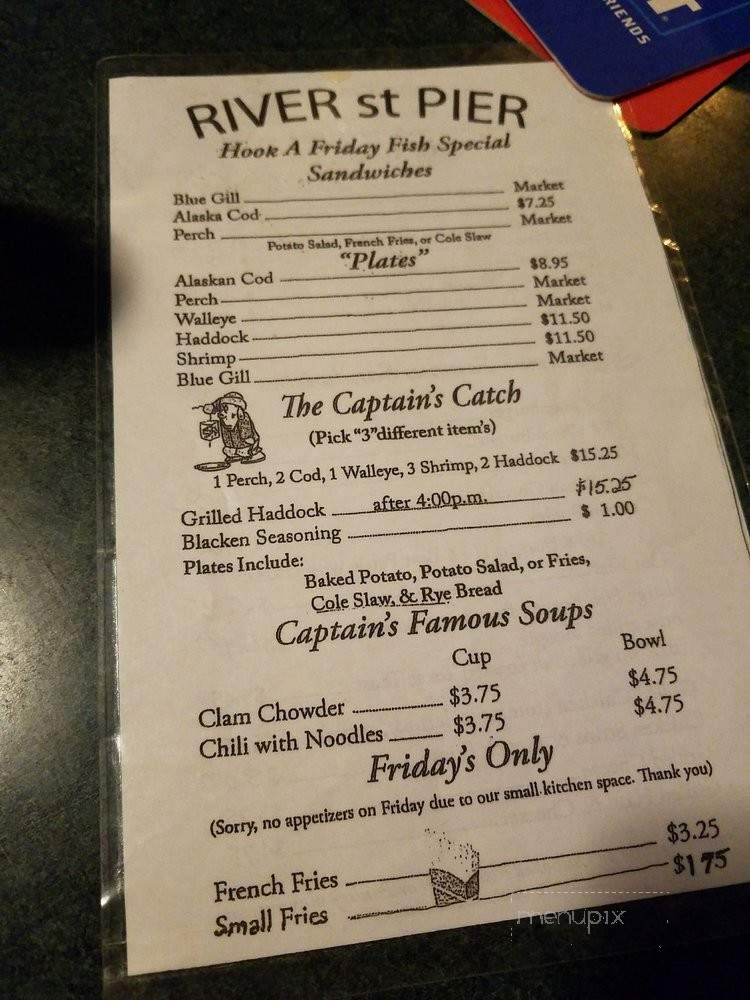 RIENDS
RIVER st PIER
Hook A Friday Fish Special
Sandwiches
Blue Gill Market
Alaska Cod $7.25
Perch Market
Potato Salad, French Fries, or Cole Slaw
"Plates"
Alaskan Cod $8.95
Perch Market
Walleye Market
Haddock $11.50
Shrimp $11.50
Blue Gill Market
The Captain's Catch
(Pick "3"different item's)
1 Perch, 2 Cod, 1 Walleye, 3 Shrimp, 2 Haddock $15.25
Grilled Haddock after 4:00p.m. $15.25
Blacken Seasoning $ 1.00
Plates Include:
Baked Potato, Potato Salad, or Fries,
Cole Slaw, & Rye Bread
Captain's Famous Soups
Cup Bowl
Clam Chowder $3.75 $4.75
Chili with Noodles $3.75 $4.75
Friday's Only
(Sorry, no appetizers on Friday due to our small kitchen space. Thank you)
French Fries $3.25
Small Fries $1.75
menupix